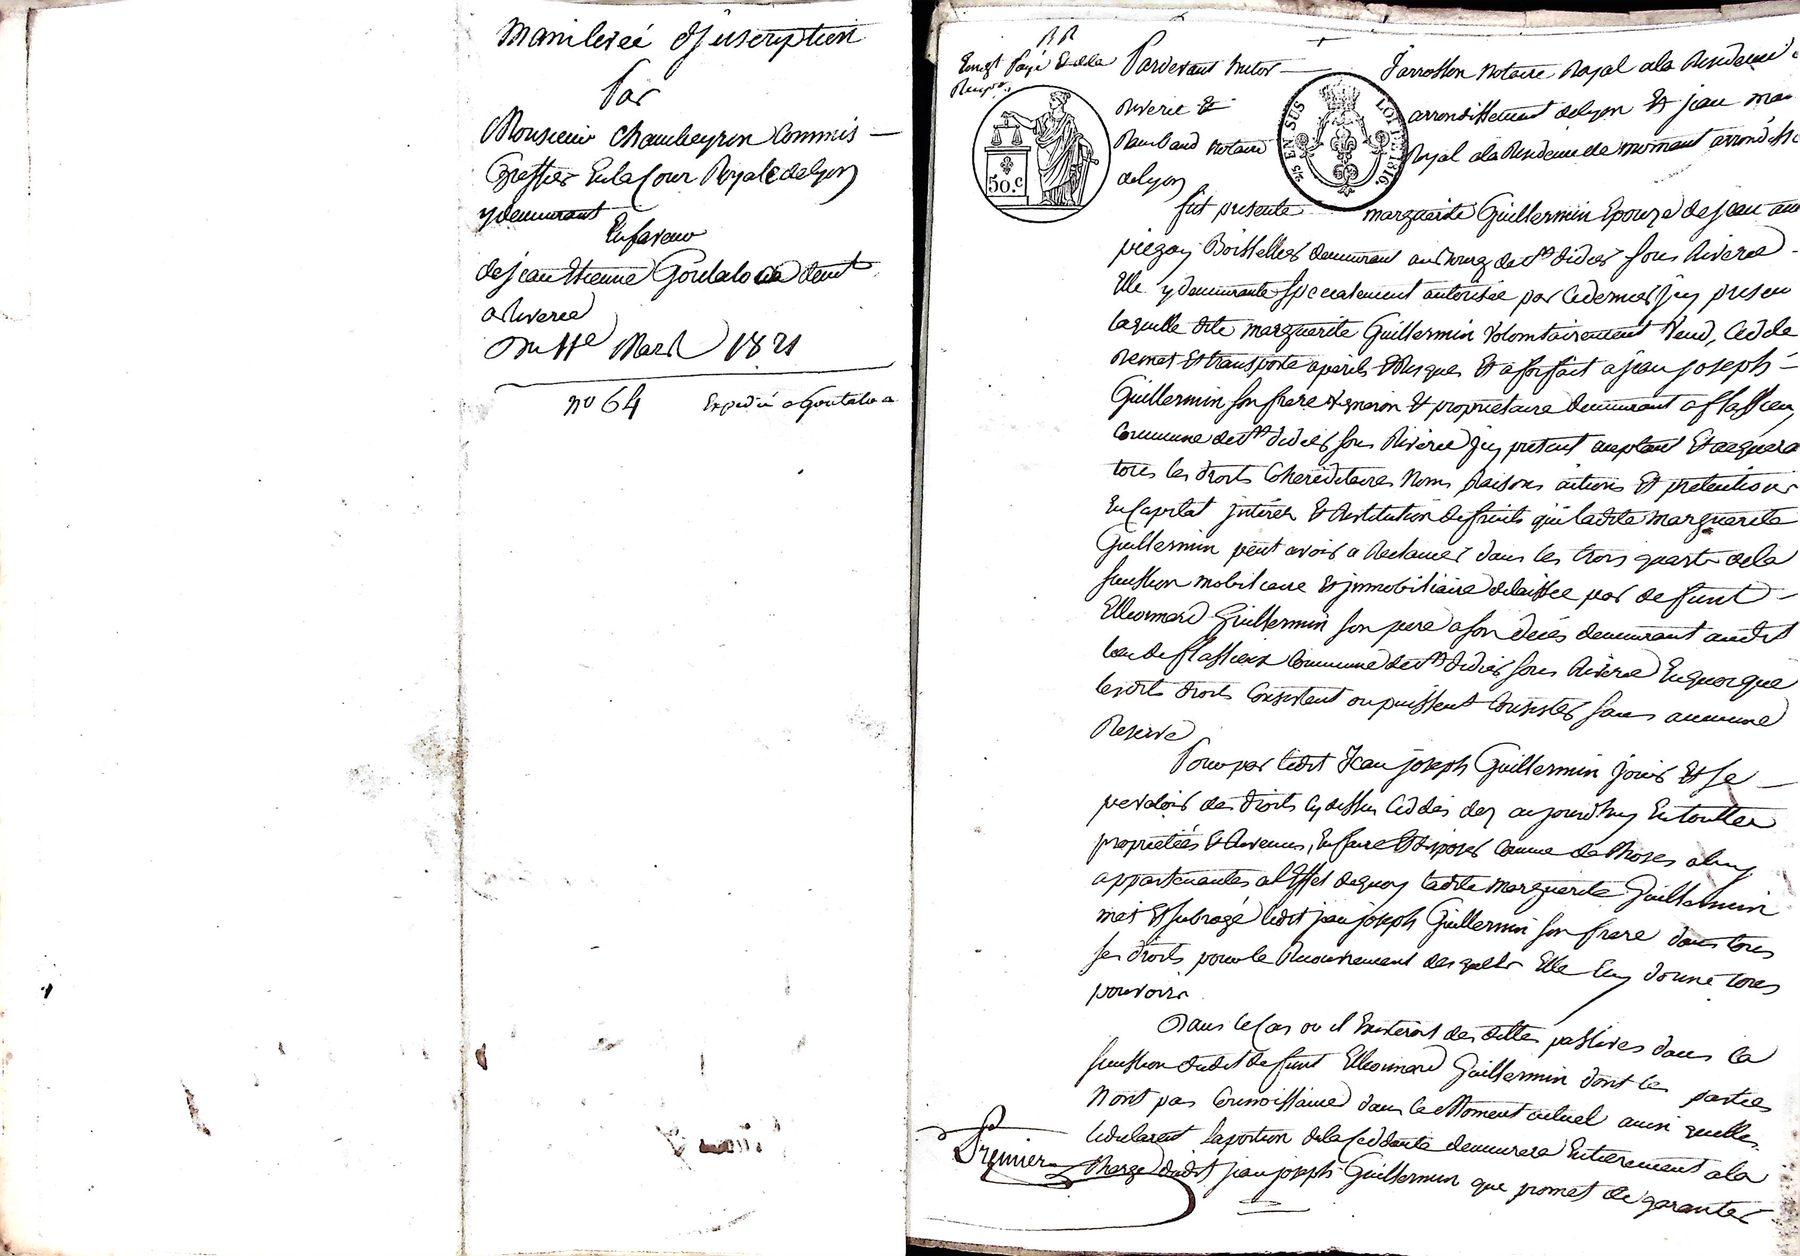 Mainlevée d'inscription
Par
Monsieur Chambeyron Commis
Greffier En la Cour Royale de Lyon
y demeurant
En faveur
de jean Etienne Goutalo
a Riverie
Du 11e Mars 1821
no 64 Expedié a Goutalo
Pardevant Victor Farrossen Notaire Royal a la Residence
Riverie Et arrondissement de Lyon Et jean mar
Raimbaud notaire Royal a la Residence de mornant arrondisse
de Lyon
50.c
EN SUS
LOI DE 1816.
fut presente marguerite Guillermin Epouze de jean an
piezay Boisselier demeurant au Bourg de st didier sous Riverie
Elle y demeurante specialement autorisée par ce dernier jcy presen
laquelle dite marguerite Guillermin volontairement vend, cedde
remet Et transporte a perils Et Risques Et a forfait a jean joseph
Guillermin son frere vigneron Et proprietaire demeurant a flassieu
Commune de st didier sous Riverie jcy present acceptant Et acquera
tous les droits Cohereditaires Noms Raisons actions Et pretentions
En Capital jntérets Et Restitution de fruits que ladite marguerite
Guillermin peut avoir a Reclamer dans les trois quarts de la
sucession mobiliaire Et jmmobiliaire delaissée par defunt
Elleonnard Guillermin son pere a son deces demeurant audit
lieu de flassieux Commune de st didier sous Riverie En quoi que
lesdits droits Consistent ou puissent Consister sans aucune
Reserve
Pour par ledit Jean joseph Guillermin jouir Et se
prevaloir des droits cy dessus Ceddés dez aujourd'huy En touttes
propriétés Et Revenus, En faire Et disposer Comme de choses a luy
appartenantes a l'Effet de quoy ladite marguerite Guillermin
met Et subroge ledit jean joseph Guillermin son frere dans tous
ses droits pour le Recouvrement desquels Elle luy donne tous
pouvoirs
Dans le Cas ou il Existeroit des dettes passives dans la
sucession dudit defunt Elleonnard Guillermin dont les parties
N'ont pas Connoissance dans le Moment actuel ainsi quelles
le declarent la portion de la Ceddante demeurera Entierement a la
Charge dudit jean joseph Guillermin que promet de garantir
Premier